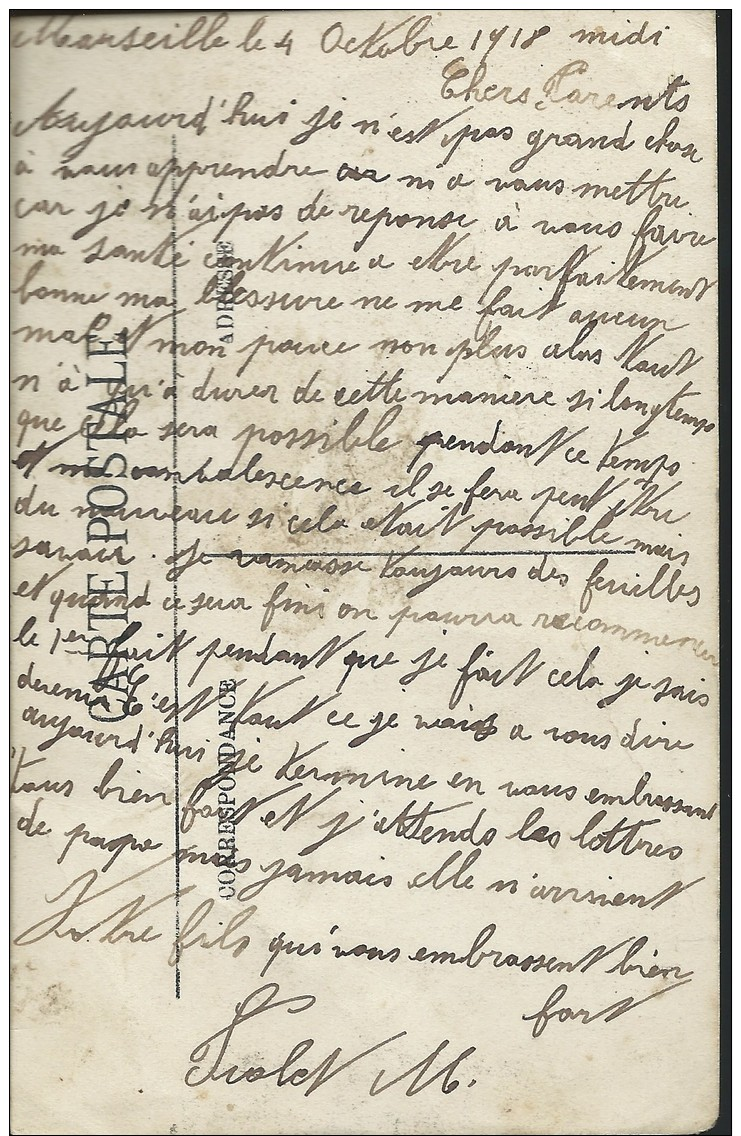 Marseille le 4 Octobre 1918 midi
Chers Parents
Aujourd'hui je n'est pas grand chose
à vous apprendre ni a vous mettre
car je n'ai pas de reponse à vous faire
ma santé continue a etre parfaitement
bonne ma blessure ne me fait aucun
mal et mon pouce non plus alors tout
n'à qu'à durer de cette maniere si longtemps
que cela sera possible pendant ce temps
et ma convalescence il se fera peut etre
du nouveau si cela etait possible mais
savoir. Je ramasse toujours des feuilles
et quand ce sera fini on pourra recommencer
le 1er fait pendant que je fait cela je sais
devenir C'est tout ce je vais a vous dire
aujourd'hui je termine en vous embrassant
tous bien fort et j'attends les lettres
de papa mais jamais elle n'arrisient
Votre fils qui vous embrassent bien
fort
M.
CARTE POSTALE
ADRESSE
CORRESPONDANCE